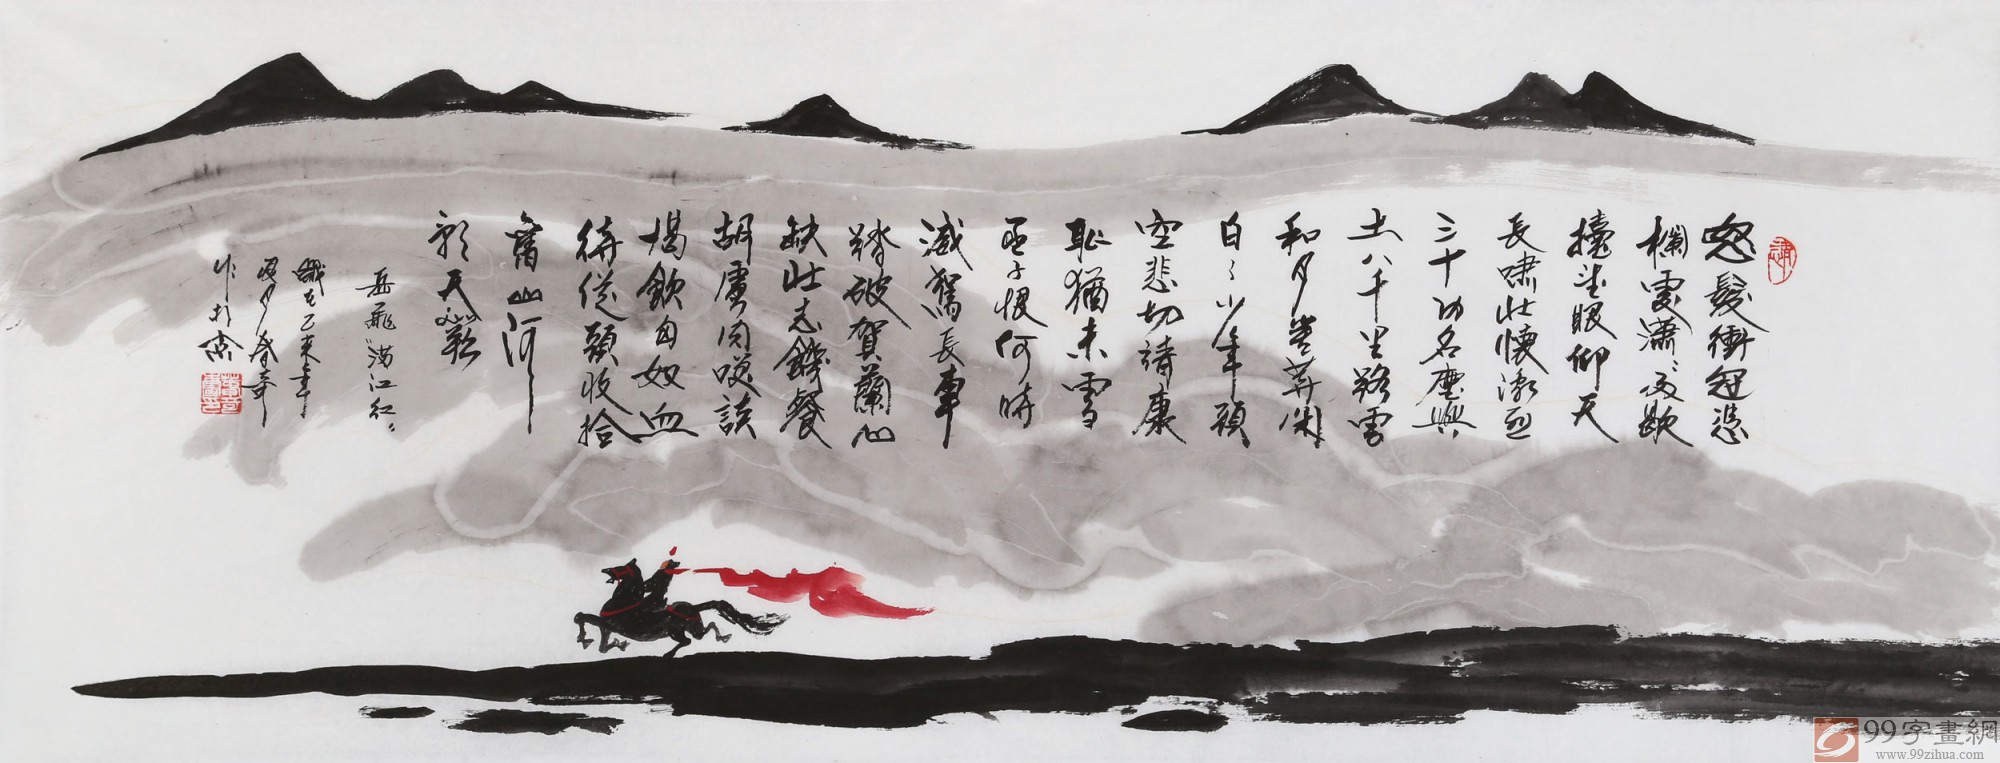 怒髮衝冠憑
欄處瀟瀟雨歇
擡望眼仰天
長嘯壯懷激烈
三十功名塵與
土八千里路雲
和月莫等闲
白了少年頭
空悲切靖康
恥猶未雪
臣子恨何時
滅駕長車
踏破賀蘭山
缺壯志饑餐
胡虜肉笑談
渴飲匈奴血
待從頭收拾
舊山河
朝天闕
岳飛滿江红
歲在乙未年
月春奇
作於京
99字畫網
www.99zihua.com